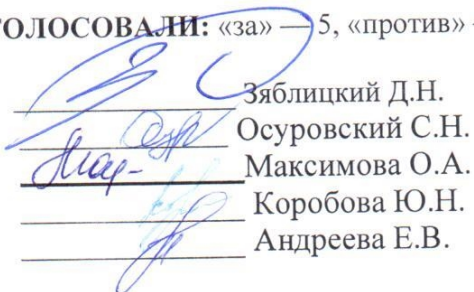 ГОЛОСОВАЛИ: «за» — 5, «против»
Зяблицкий Д.Н.
Осуровский С.Н.
Максимова О.А.
Коробова Ю.Н.
Андреева Е.В.